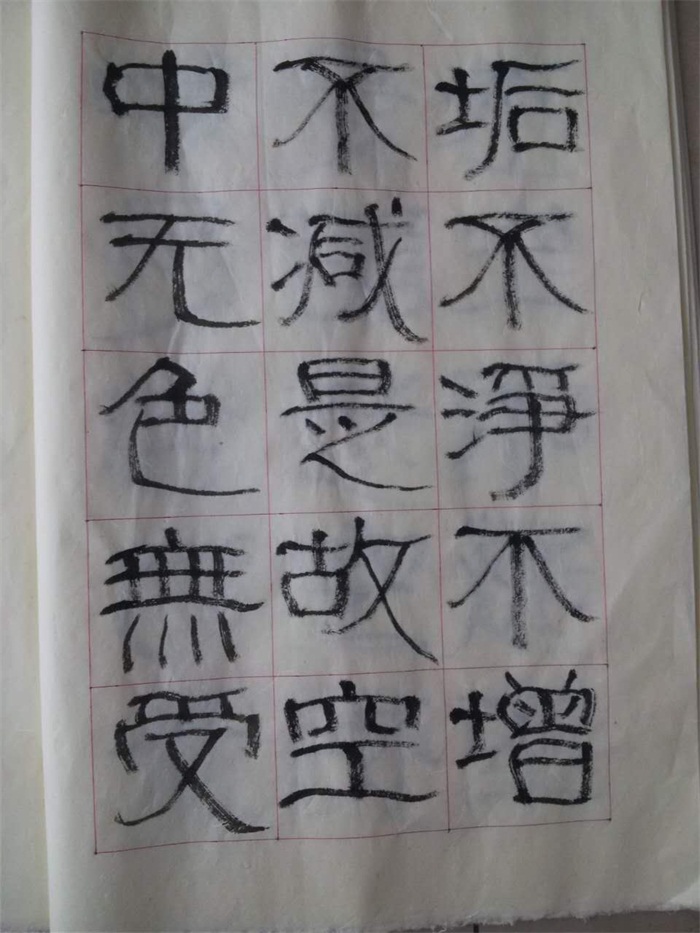 垢不淨不增
不減是故空
中无色無受